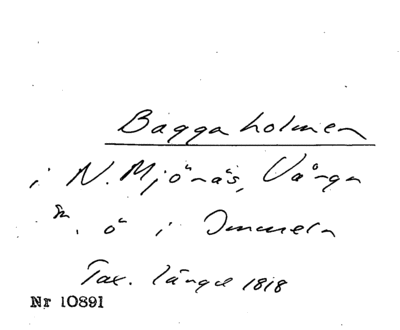 Baggaholmen
i N. Mjönäs, Vånga
sn. ö i Immeln
Tax. längd 1818
Nr 10891